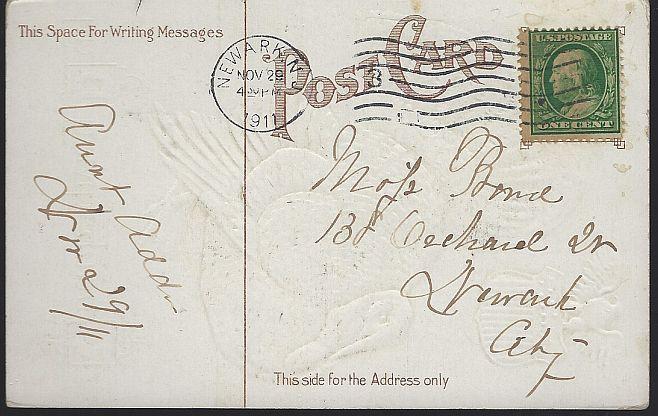 This Space For Writing Messages
POST CARD
NEWARK N.J.
NOV 29
4 30 PM
1911
3
U.S. POSTAGE
ONE CENT
Aunt Addie
Nov 29/11
Bond
138 Orchard St
Newark
City
This side for the Address only